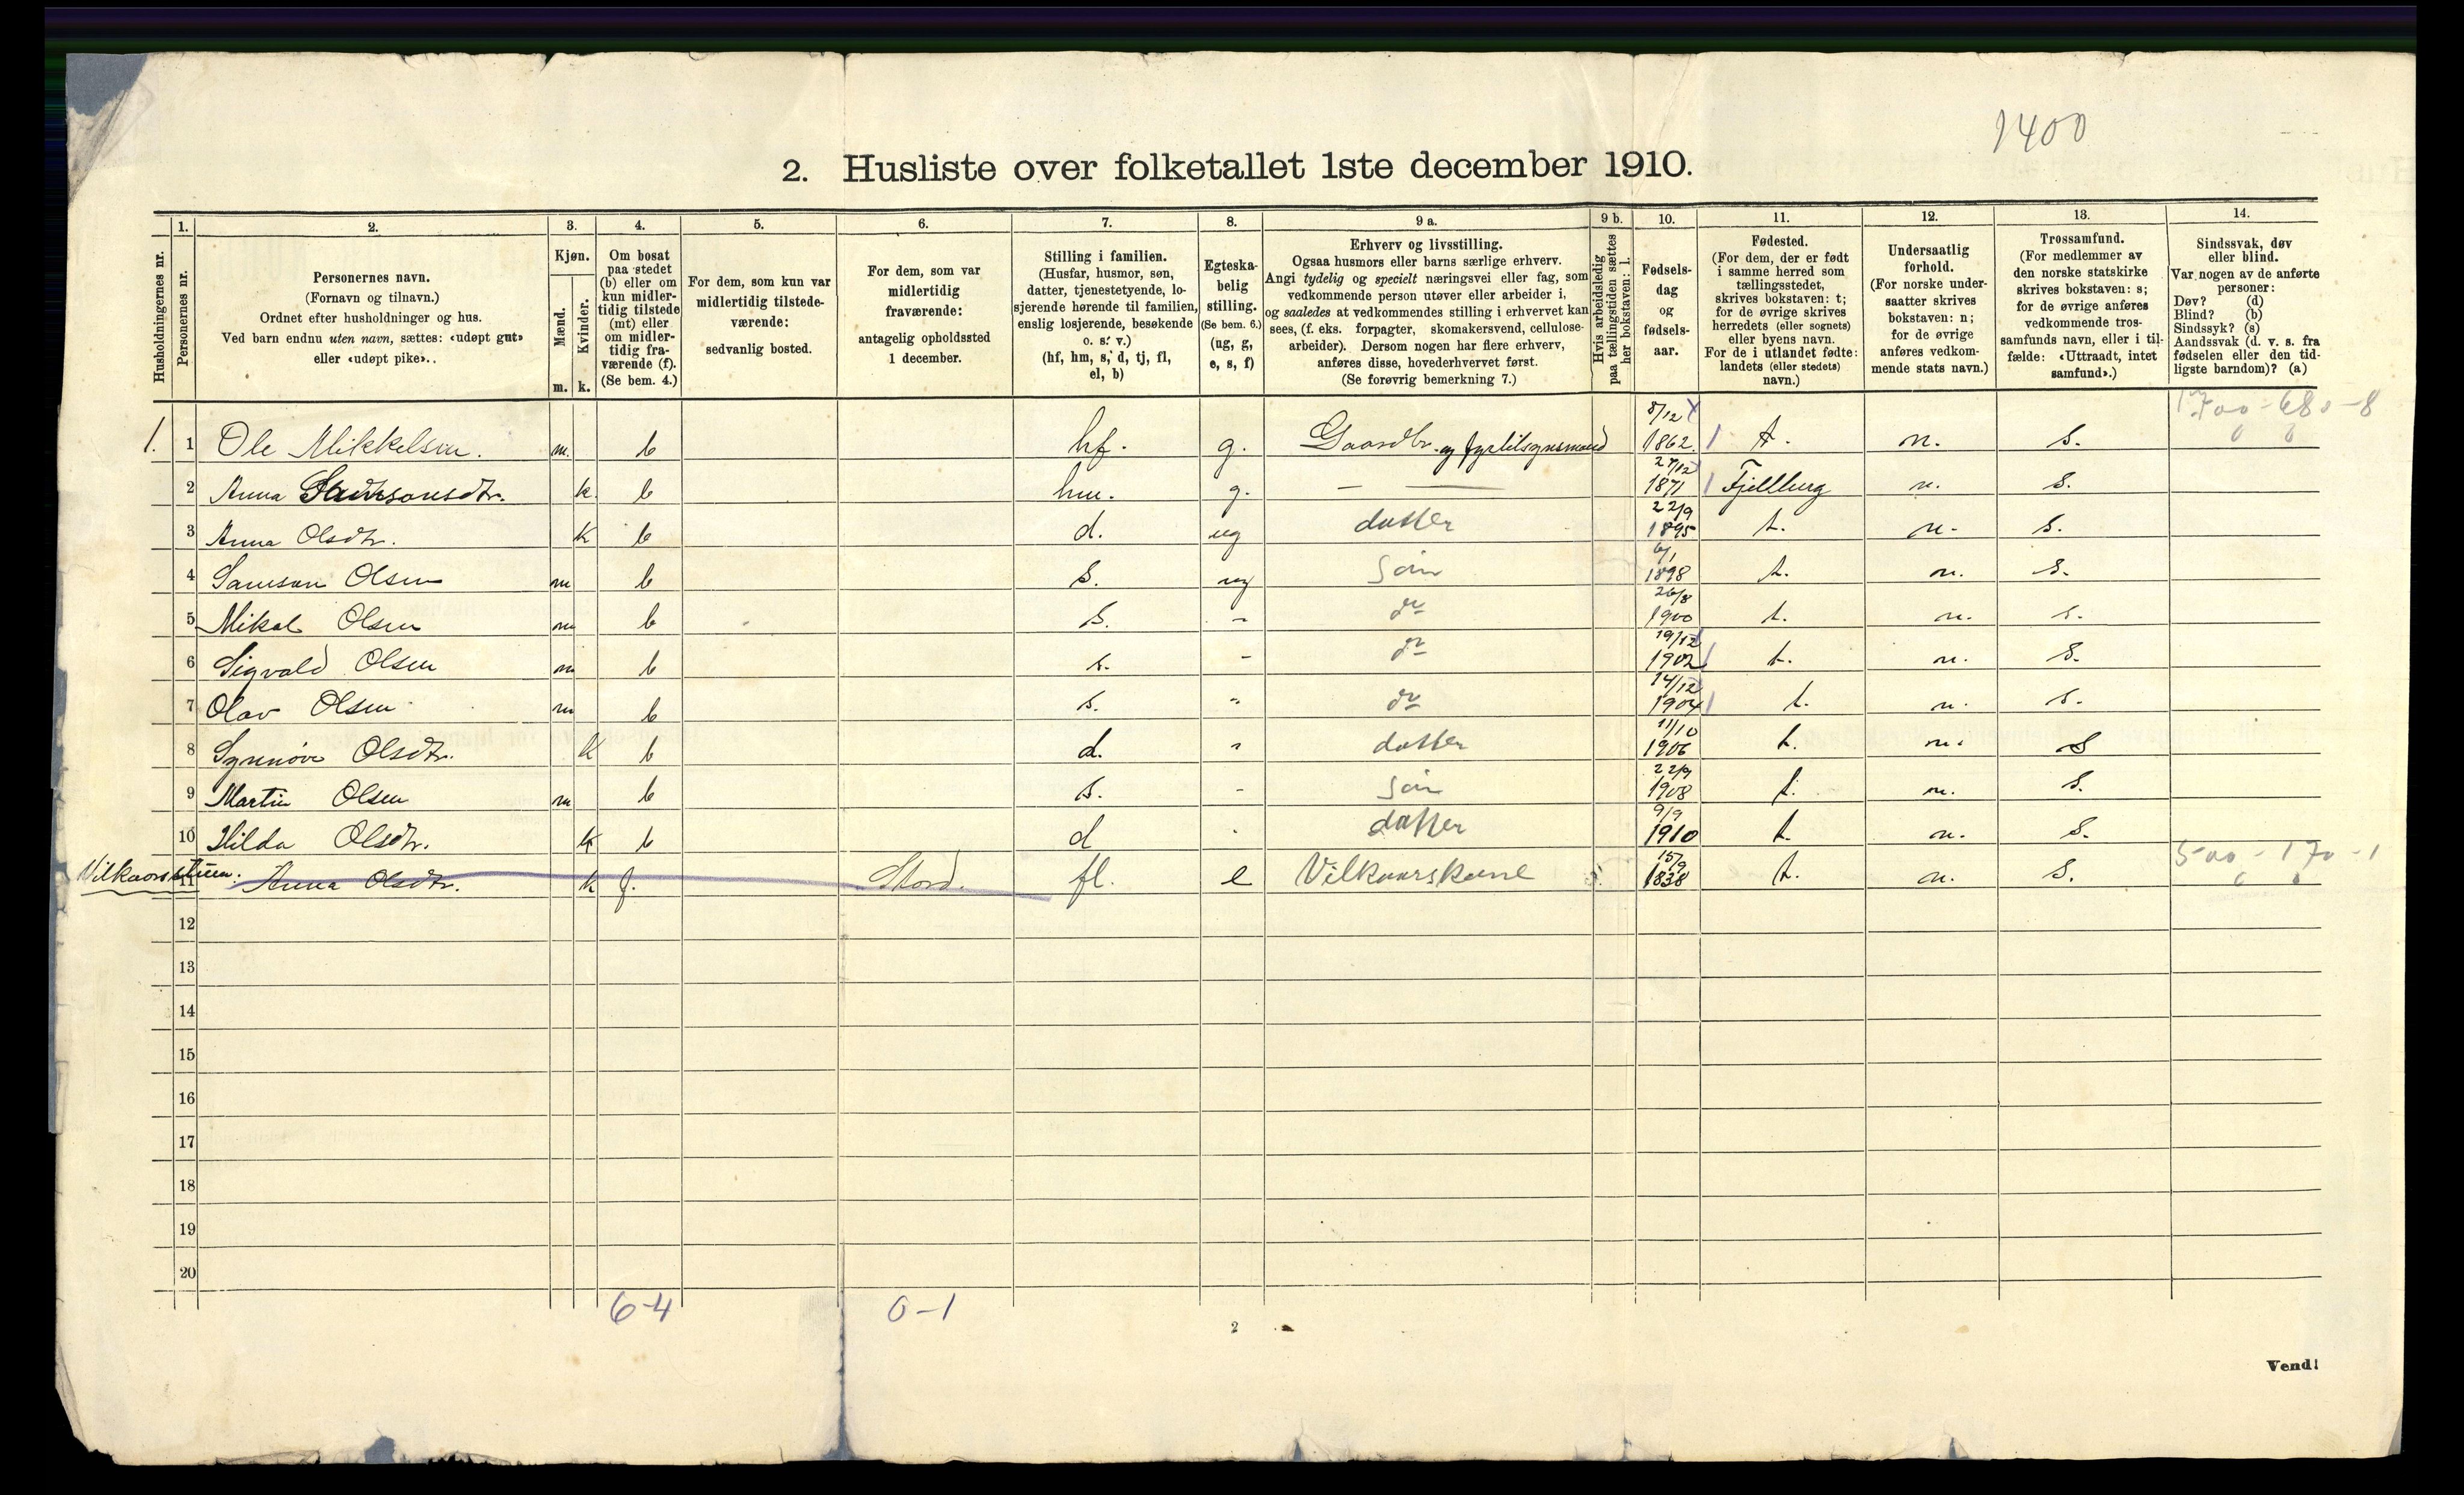 1400
2. Husliste over folketallet 1ste december 1910.
1. 2. 3. 4. 5. 6. 7. 8. 9 a. 9 b. 10. 11. 12. 13. 14.
Husholdningernes nr.
Personernes nr.
Personernes navn.
(Fornavn og tilnavn.)
Ordnet efter husholdninger og hus.
Ved barn endnu uten navn, sættes: «udøpt gut»
eller «udøpt pike».
Kjøn.
Mænd.
Kvinder.
m. k.
Om bosat
paa stedet
(b) eller om
kun midler-
tidig tilstede
(mt) eller
om midler-
tidig fra-
værende (f).
(Se bem. 4.)
For dem, som kun var
midlertidig tilstede-
værende:
sedvanlig bosted.
For dem, som var
midlertidig
fraværende:
antagelig opholdssted
1 december.
Stilling i familien.
(Husfar, husmor, søn,
datter, tjenestetyende, lo-
sjerende hørende til familien,
enslig losjerende, besøkende
o. s. v.)
(hf, hm, s, d, tj, fl,
el, b)
Egteska-
belig
stilling.
(Se bem. 6.)
(ug, g,
e, s, f)
Erhverv og livsstilling.
Ogsaa husmors eller barns særlige erhverv.
Angi tydelig og specielt næringsvei eller fag, som
vedkommende person utøver eller arbeider i,
og saaledes at vedkommendes stilling i erhvervet kan
sees, (f. eks. forpagter, skomakersvend, cellulose-
arbeider). Dersom nogen har flere erhverv,
anføres disse, hovederhvervet først.
(Se forøvrig bemerkning 7.)
Hvis arbeidsledig
paa tællingstiden sættes
her bokstaven: l.
Fødsels-
dag
og
fødsels-
aar.
Fødested.
(For dem, der er født
i samme herred som
tællingsstedet,
skrives bokstaven: t;
for de øvrige skrives
herredets (eller sognets)
eller byens navn.
For de i utlandet fødte:
landets (eller stedets)
navn.)
Undersaatlig
forhold.
(For norske under-
saatter skrives
bokstaven: n;
for de øvrige
anføres vedkom-
mende stats navn.)
Trossamfund.
(For medlemmer av
den norske statskirke
skrives bokstaven: s;
for de øvrige anføres
vedkommende tros-
samfunds navn, eller i til-
fælde: «Uttraadt, intet
samfund».)
Sindssvak, døv
eller blind.
Var nogen av de anførte
personer:
Døv? (d)
Blind? (b)
Sindssyk? (s)
Aandssvak (d. v. s. fra
fødselen eller den tid-
ligste barndom)? (a)
1700-680-8
0 0
1. 1 Ole Mikkelsen. m. b hf. g. Gaardbr. og fyrtilsynsmand 8/12 1862 t. n. s.
2 Anna Samsonsdtr. k. b hm. g. — — 27/12 1871 Fjellberg n. s.
3 Anna Olsdtr. k b d. ug datter 22/9 1895 t. n. s.
4 Samson Olsen m b s. ug søn 6/1 1898 t. n. s.
5 Mikal Olsen m b s. - do 26/8 1900 t. n. s.
6 Sigvald Olsen m b s. - do 19/12 1902 t. n. s.
7 Olav Olsen m b s. " do 14/12 1904 t. n. s.
8 Synnøve Olsdtr. k b d. " datter 11/10 1906 t. n. s
9 Martin Olsen m b s. - søn 22/9 1908 t. n. s.
10 Hilda Olsdtr. k b d . datter 9/9 1910 t. n. s.
500-170-1
0 0
Vilkaarsstuen. 11 Anna Olsdtr. k f. Stord. fl. e Vilkaarskone 15/9 1838 t. n. s.
12
13
14
15
16
17
18
19
20
6-4 0-1
2
Vend!